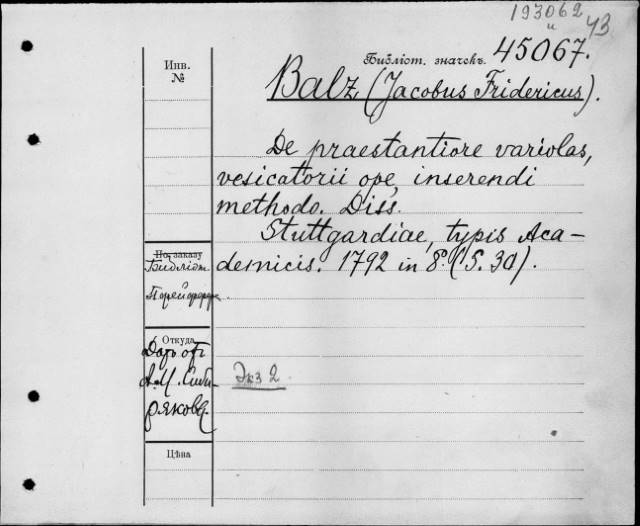 193062
и 43
Библіот. значекъ. 45067.
Инв.
№
Balz (Jacobus Fridericus).
De praestantiore variolas,
vesicatorii ope, inserendi
methodo. Diss.
Stuttgardiae, typis Aca-
demicis. 1792 in 8. (S. 30).
По заказу
Библіот.
Откуда
Даръ отъ
А.М. Сиби-
рякова.
Экз 2
Цѣна